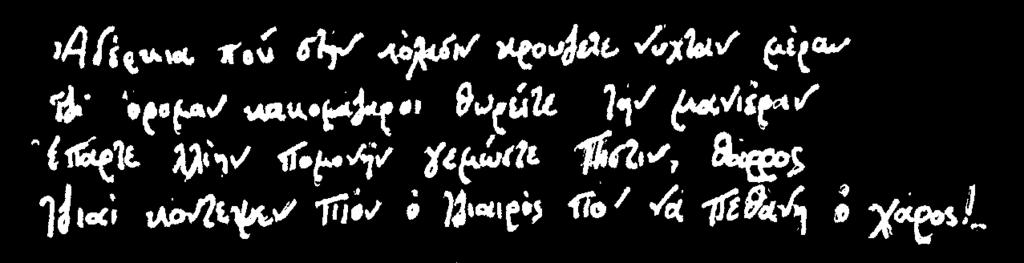 Ἀδέρκια πού στήν κόλασιν κρούζετε νύχταν μέραν
τζι' ὄρομαν κακομάζαροι θωρείτε τήν μανιέραν
Ἐπάρτε λλίην πομονήν γεμώστε πίστιν, θάρρος
Τζιαί κόντεψεν πιόν ὁ τζιαιρός πο' νά πεθάνη ὁ χάρος!..